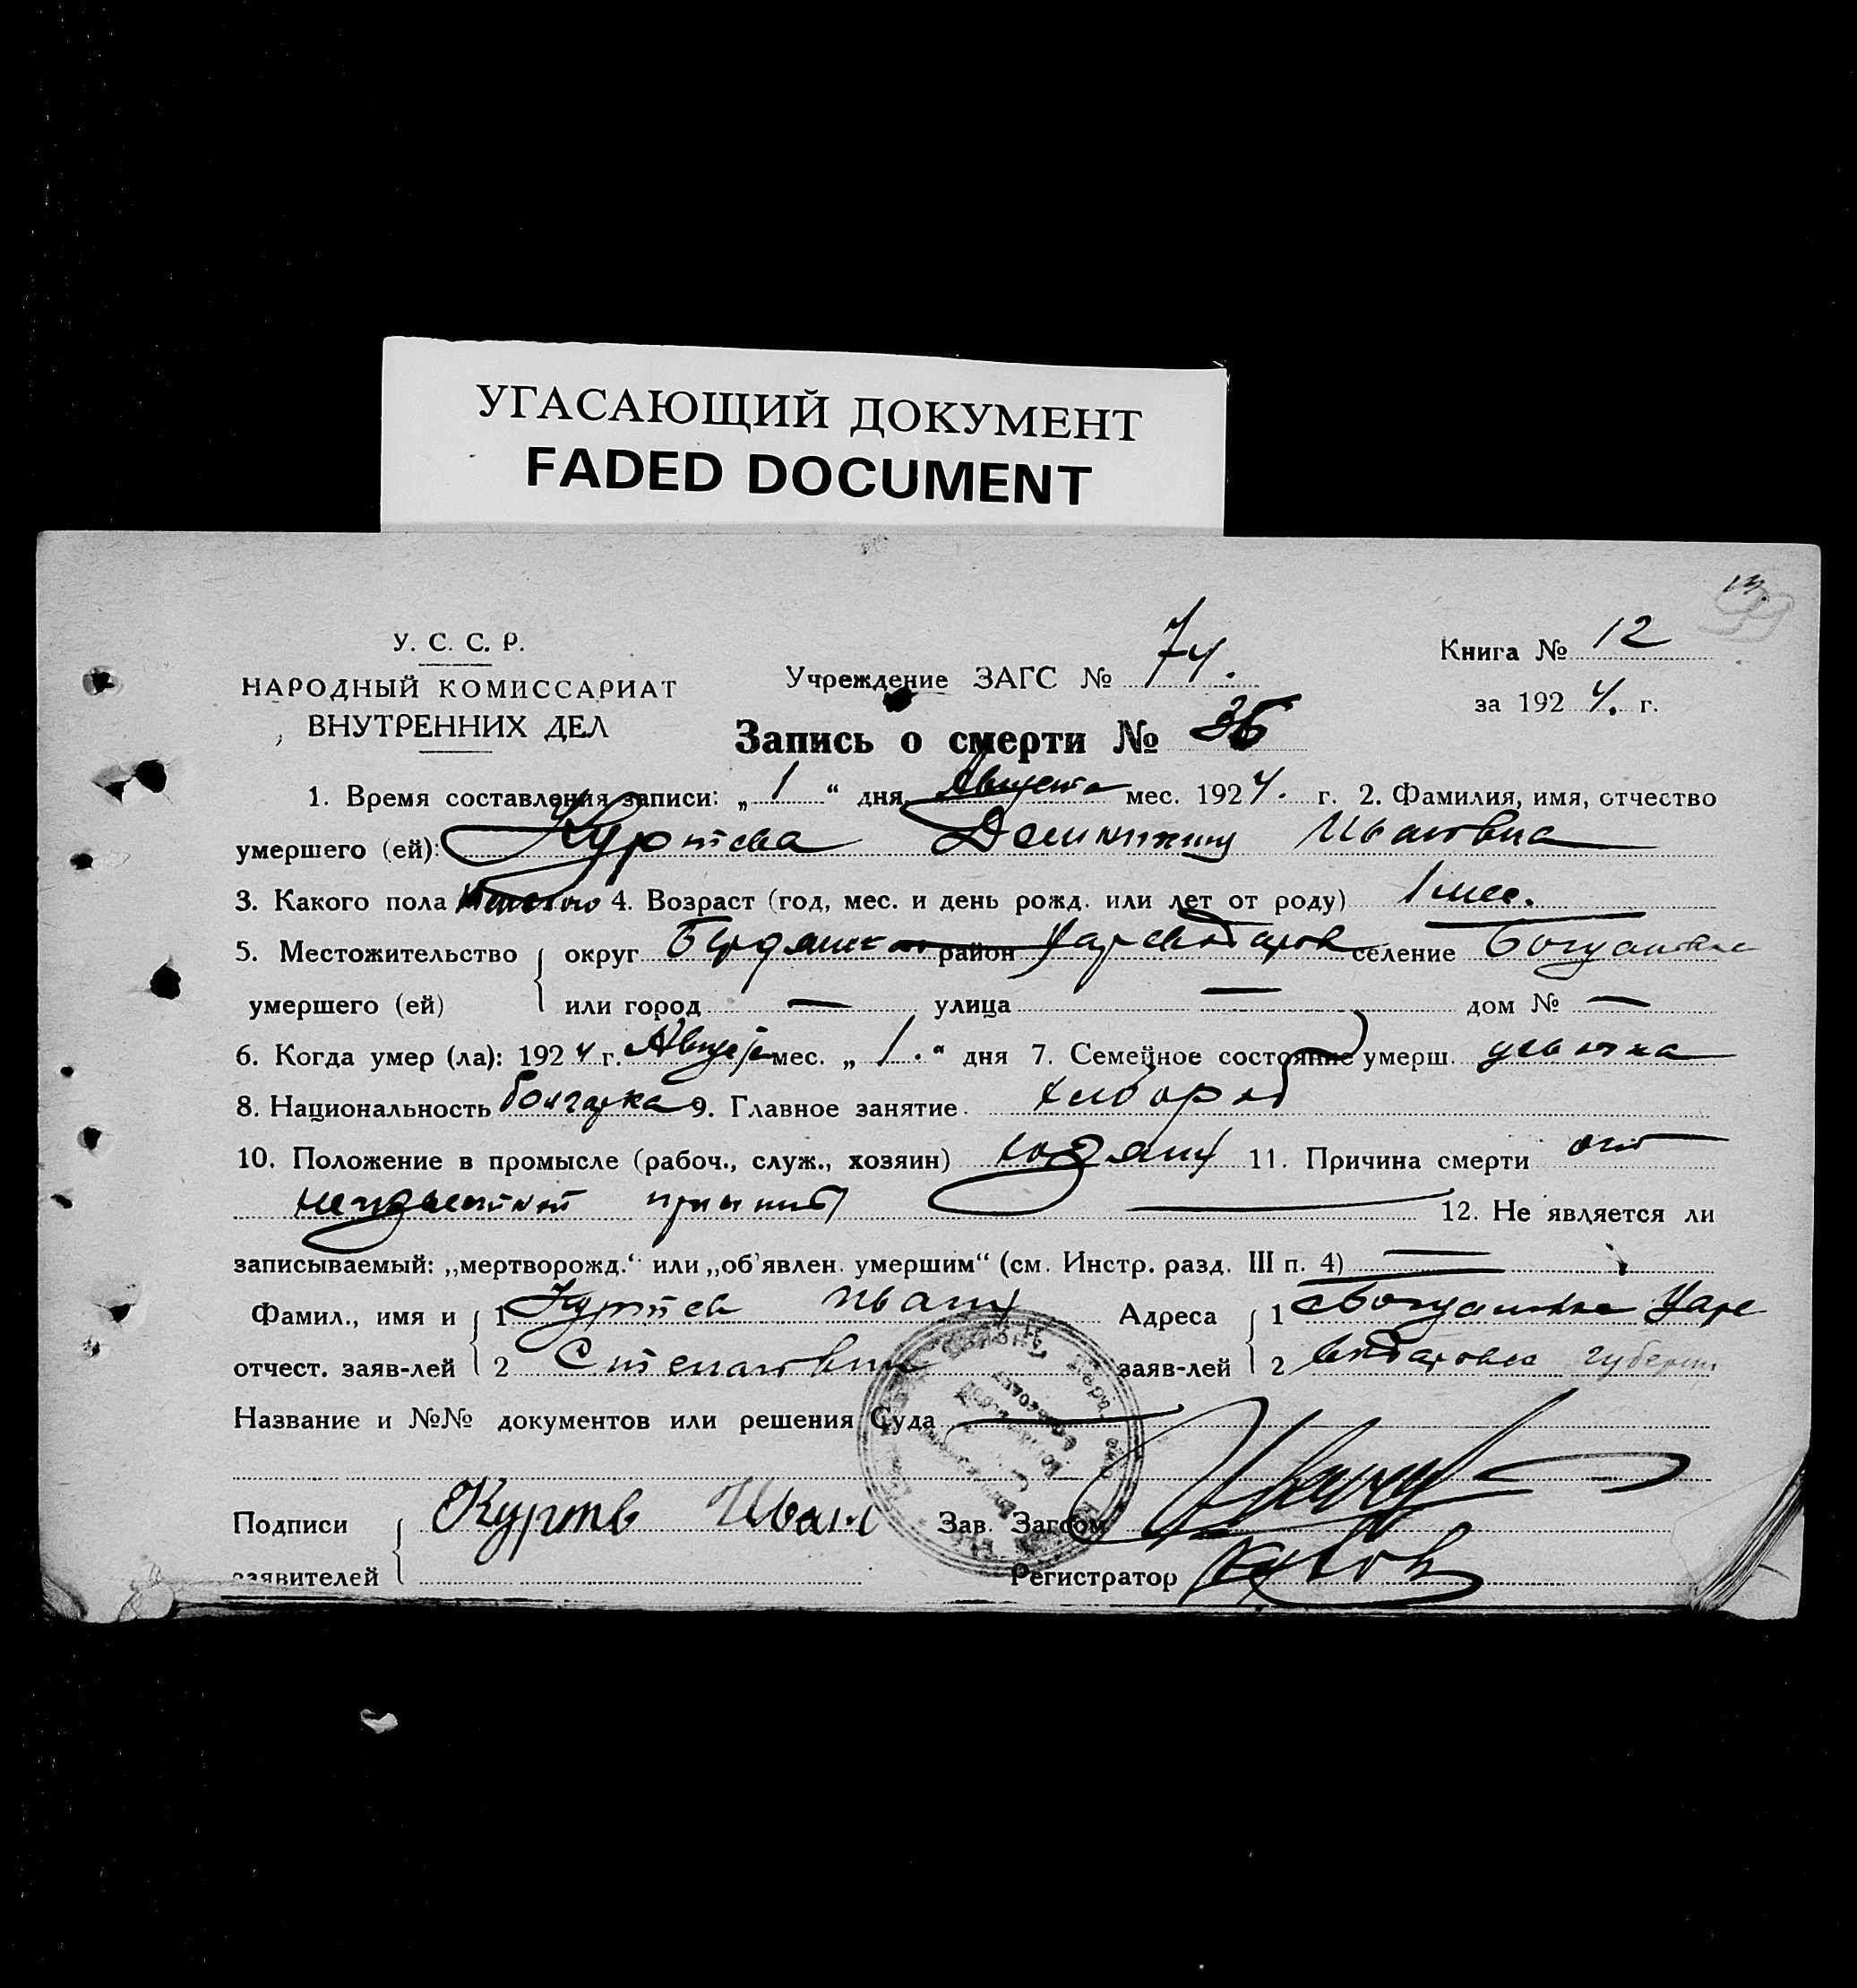 УГАСАЮЩИЙ ДОКУМЕНТ
FADED DOCUMENT
У. С. С. Р.
НАРОДНЫЙ КОМИССАРИАТ
ВНУТРЕННИХ ДЕЛ
Учреждение ЗАГС № 74.
Книга № 12
за 1924. г.
Запись о смерти № 36
1. Время составления записи: „1“ дня Августа мес. 1924. г. 2. Фамилия, имя, отчество
умершего (ей): Куртева Ивановна
3. Какого пола 4. Возраст (год, мес. и день рожд. или лет от роду) 1 мес.
5. Местожительство округ Бердянск район Цареводаров селение Богдановка
умершего (ей) или город — улица — дом № —
6. Когда умер (ла): 1924 г. Августа мес. „1.“ дня 7. Семейное состояние умерш.
8. Национальность болгарка 9. Главное занятие. хлебороб
10. Положение в промысле (рабоч., служ., хозяин) хозяин 11. Причина смерти от
неизвестной причины — 12. Не является ли
записываемый: „мертворожд.“ или „об'явлен. умершим“ (см. Инстр. разд. III п. 4) —
Фамил., имя и 1 Куртев Иван Адреса 1 с Богдановка Царе
отчест. заяв-лей 2 Степанович заяв-лей 2
Название и №№ документов или решения Суда —
Подписи Куртв Иван Зав. Загсом
заявителей Регистратор